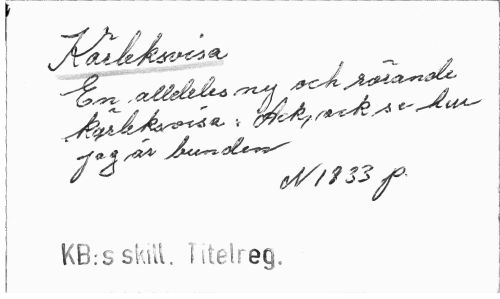 Kärleksvisa
En alldeles ny och rörande
kärleksvisa: Ack, ack se hur
jag är bunden
N 1833 p.
KB:s skill. Titelreg.